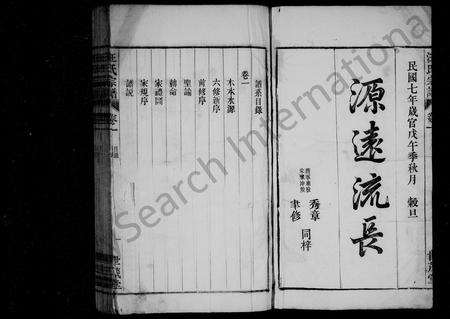 民國七年歲官戊午季秋月 穀旦
源遠流長
秀章
聿修
同梓
譜系目錄
卷一
木本水源
六修新序
前修序
聖諭
誥勅
宋禮圖
家規序
譜說
汪氏宗譜
卷一
目錄
Search International